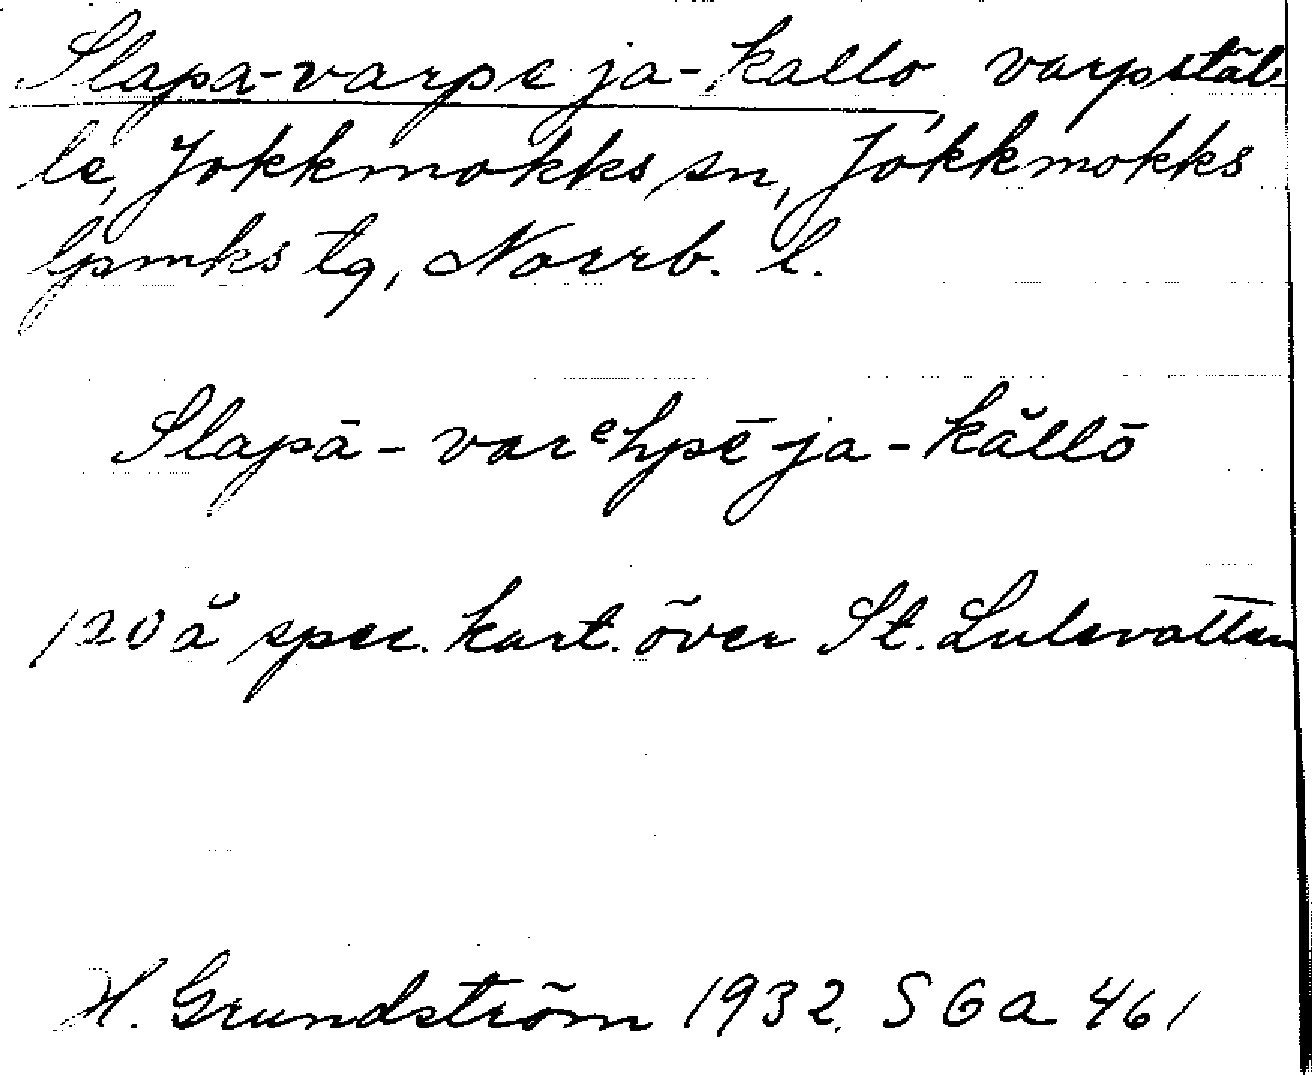 Slapa-varpeja-kallo, varpstäl-
le, Jokkmokks sn, Jokkmokks
lpmks tg, Norrb. l.
Slapā-varᵉhpē-ja-kǎllō
120 å spec. kart. över St. Lulevatten
H. Grundström 1932. SGA 461